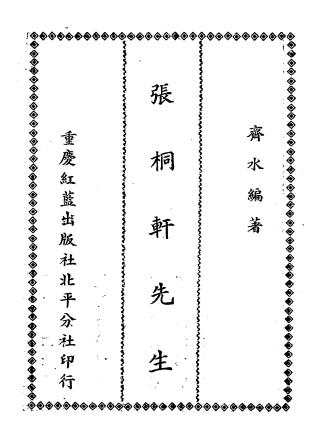 齊水編著
張桐軒先生
重慶紅藍出版社北平分社印行